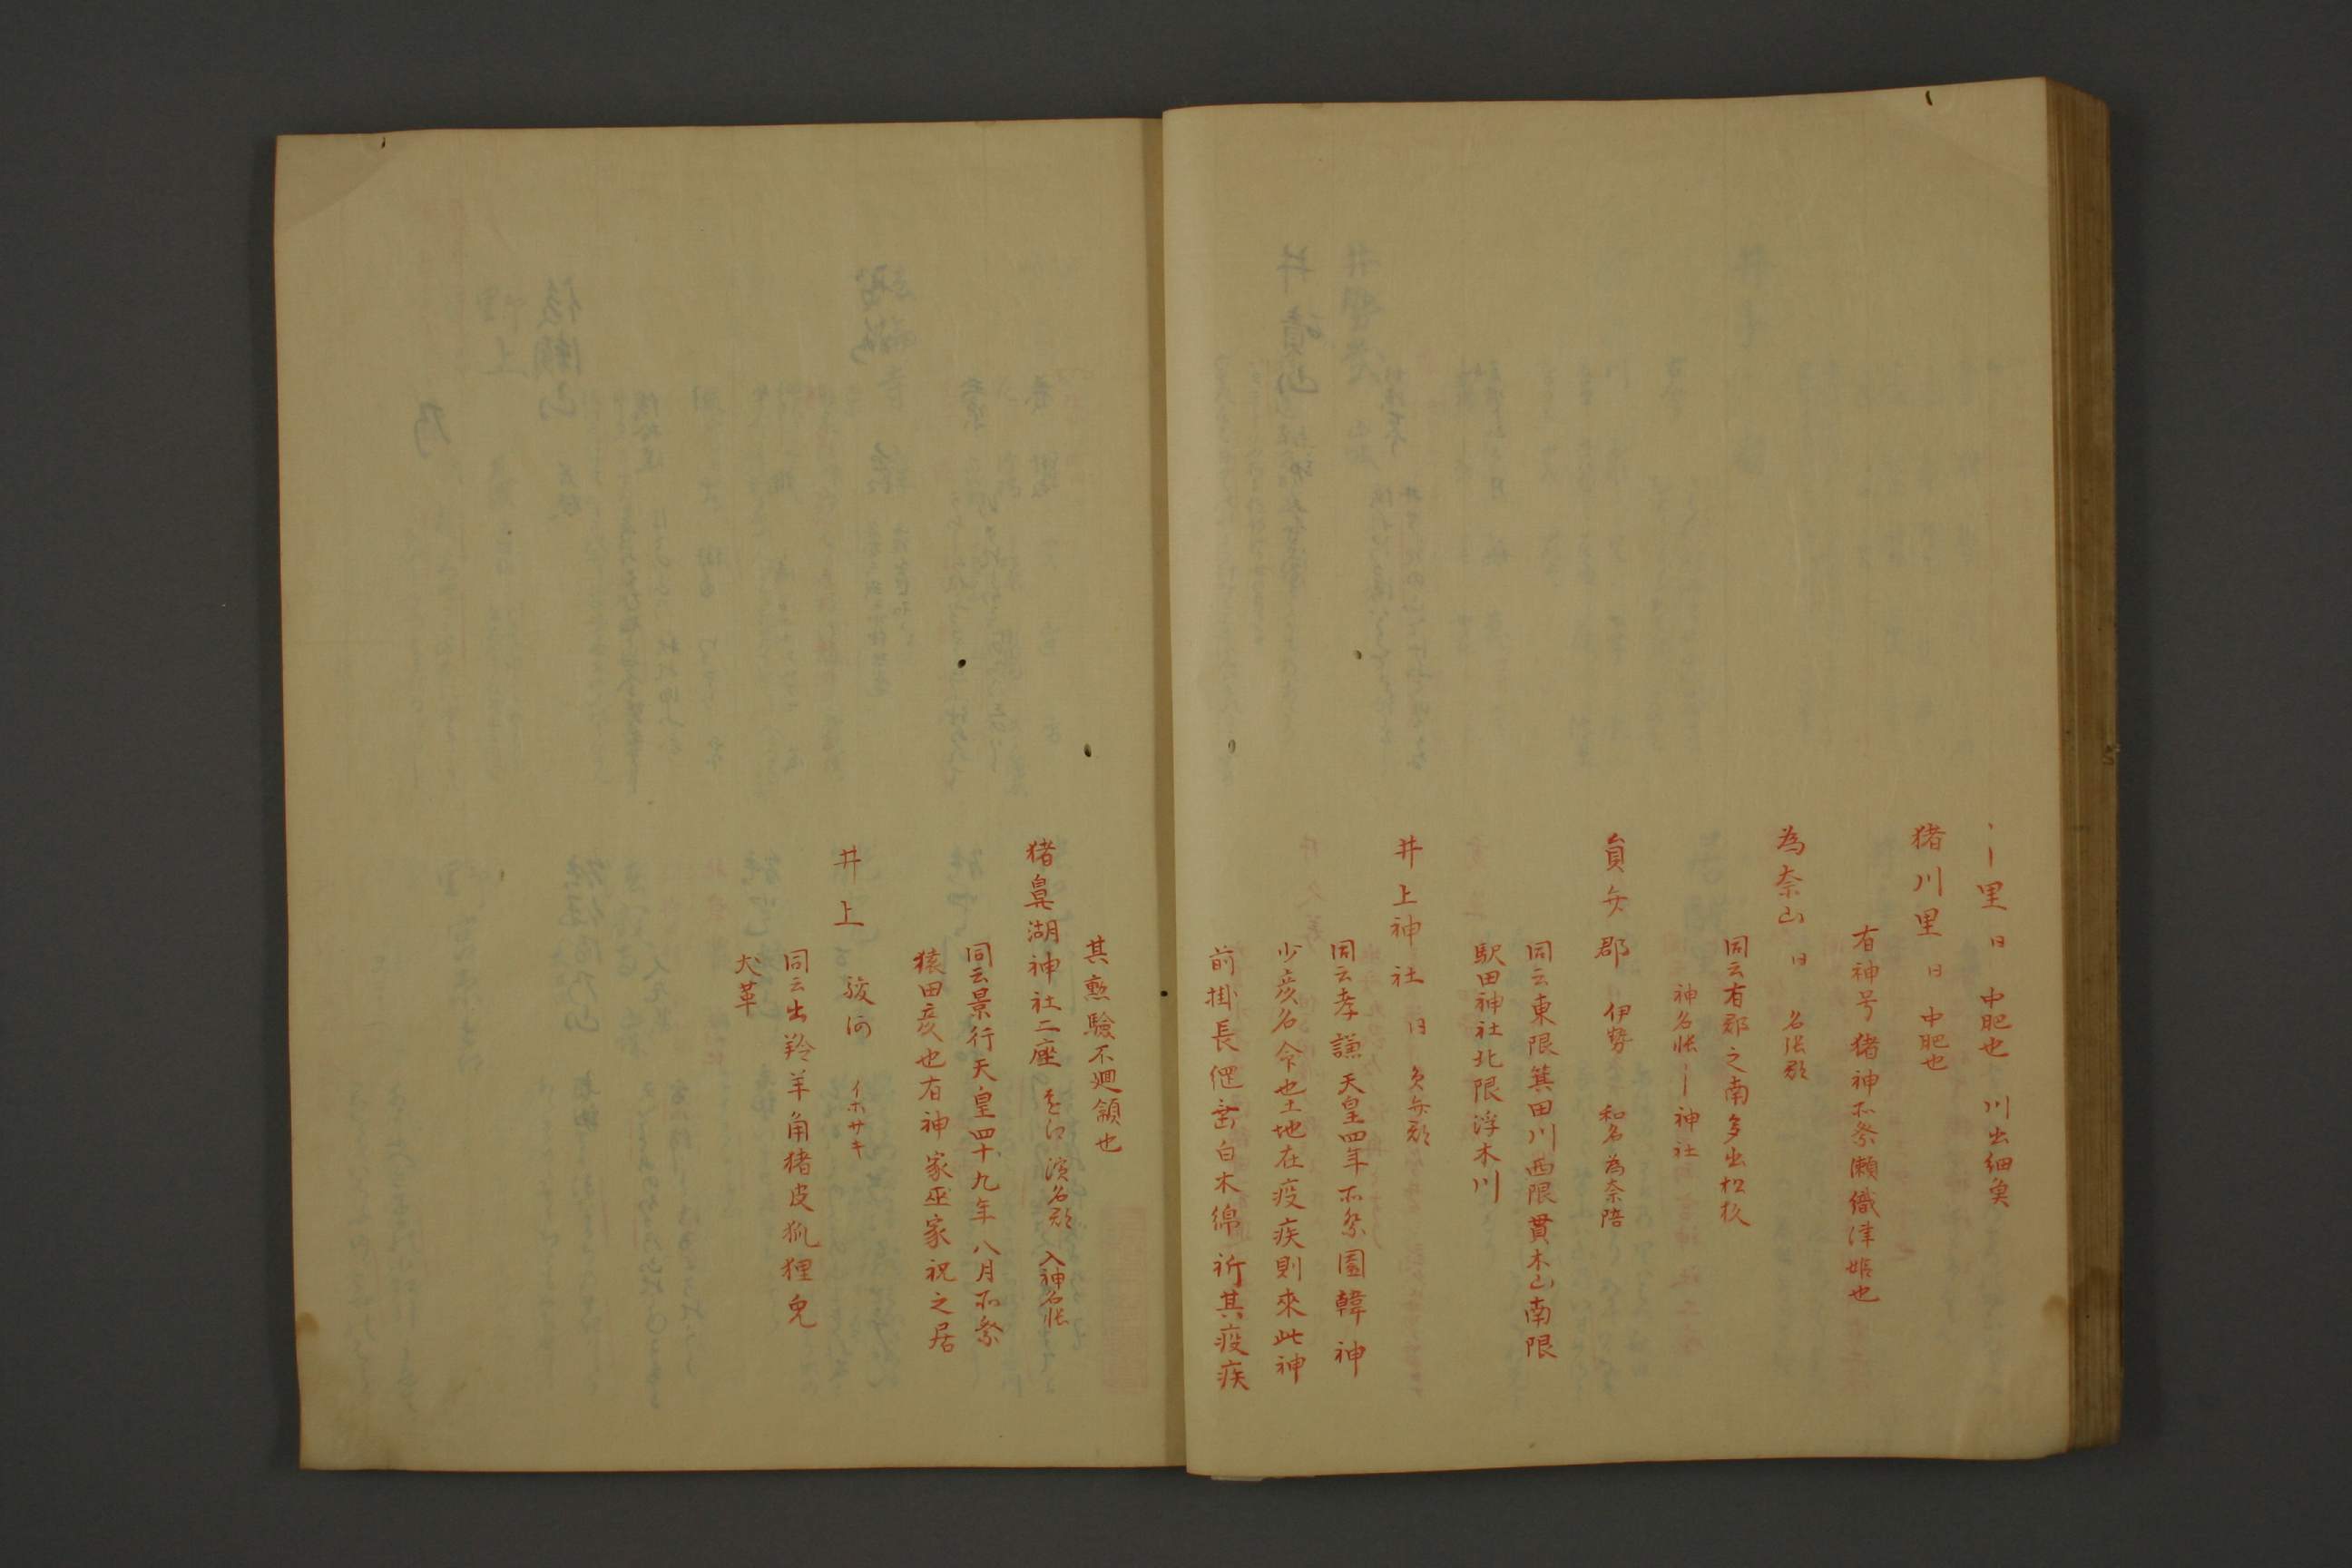 〻｜里 日 中肥也 川出細魚
猪川里 日 中肥也
有神号猪神所祭瀬織津姫也
為奈山 日 名張郡
同云有郡之南多出松杉
神名帳｜神社
員弁郡 伊勢 和名為奈陪
同云東限箕田川西限貫木山南限
駅田神社北限浮木川
井上神社 日 員弁郡
同云孝謙天皇四年所祭園韓神
少彦名命也土地在疫疾則來此神
前掛長僊垂白木綿祈其疫疾
其慙驗不廻額也
猪鼻湖神社二座 遠江 濱名郡 入神名帳
同云景行天皇四十九年八月所祭
猿田彦也有神家巫家祝之居
井上 駿河 イホサキ
同云出羚羊角猪皮狐狸兔
犬革